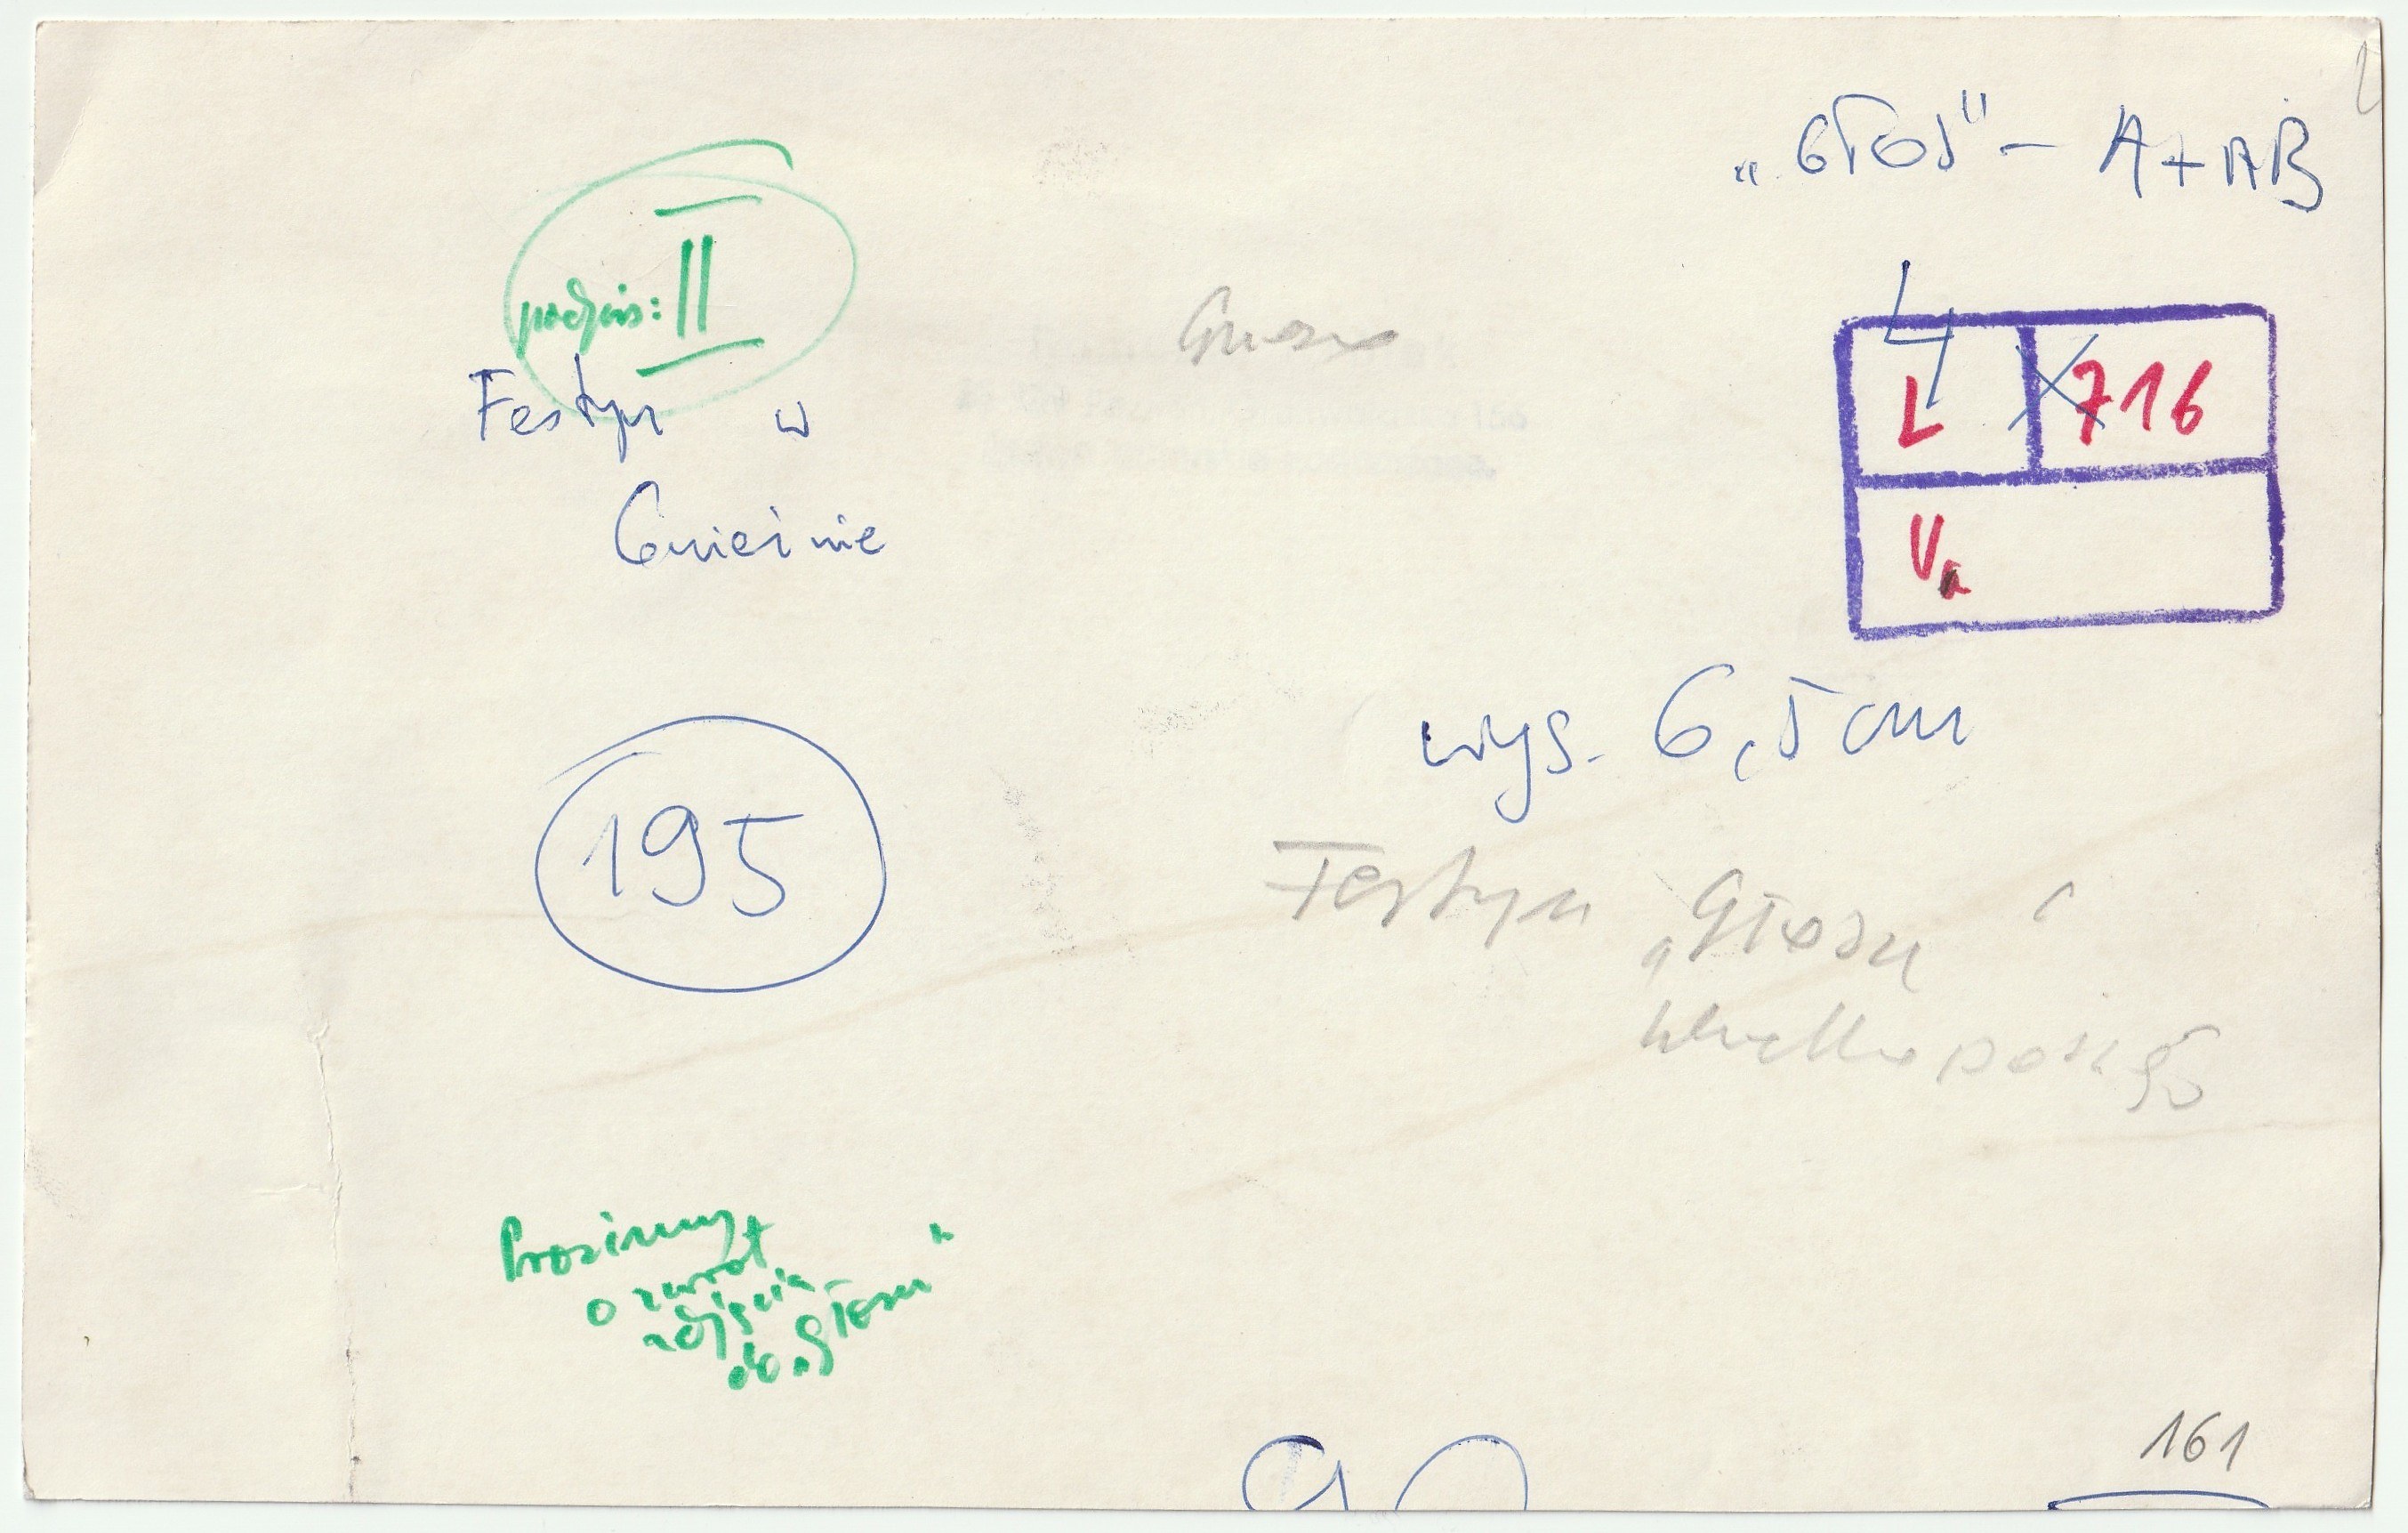 „GŁOS" – A + AB
podpis: II
Festyn w
Gnieźnie
4
L X 716
Va
wys. 6,5 cm
195
Festyn „Głosu
Wielkoposkgo
Prosimy
o zwrot
zdjęcia
do „Głosu"
161